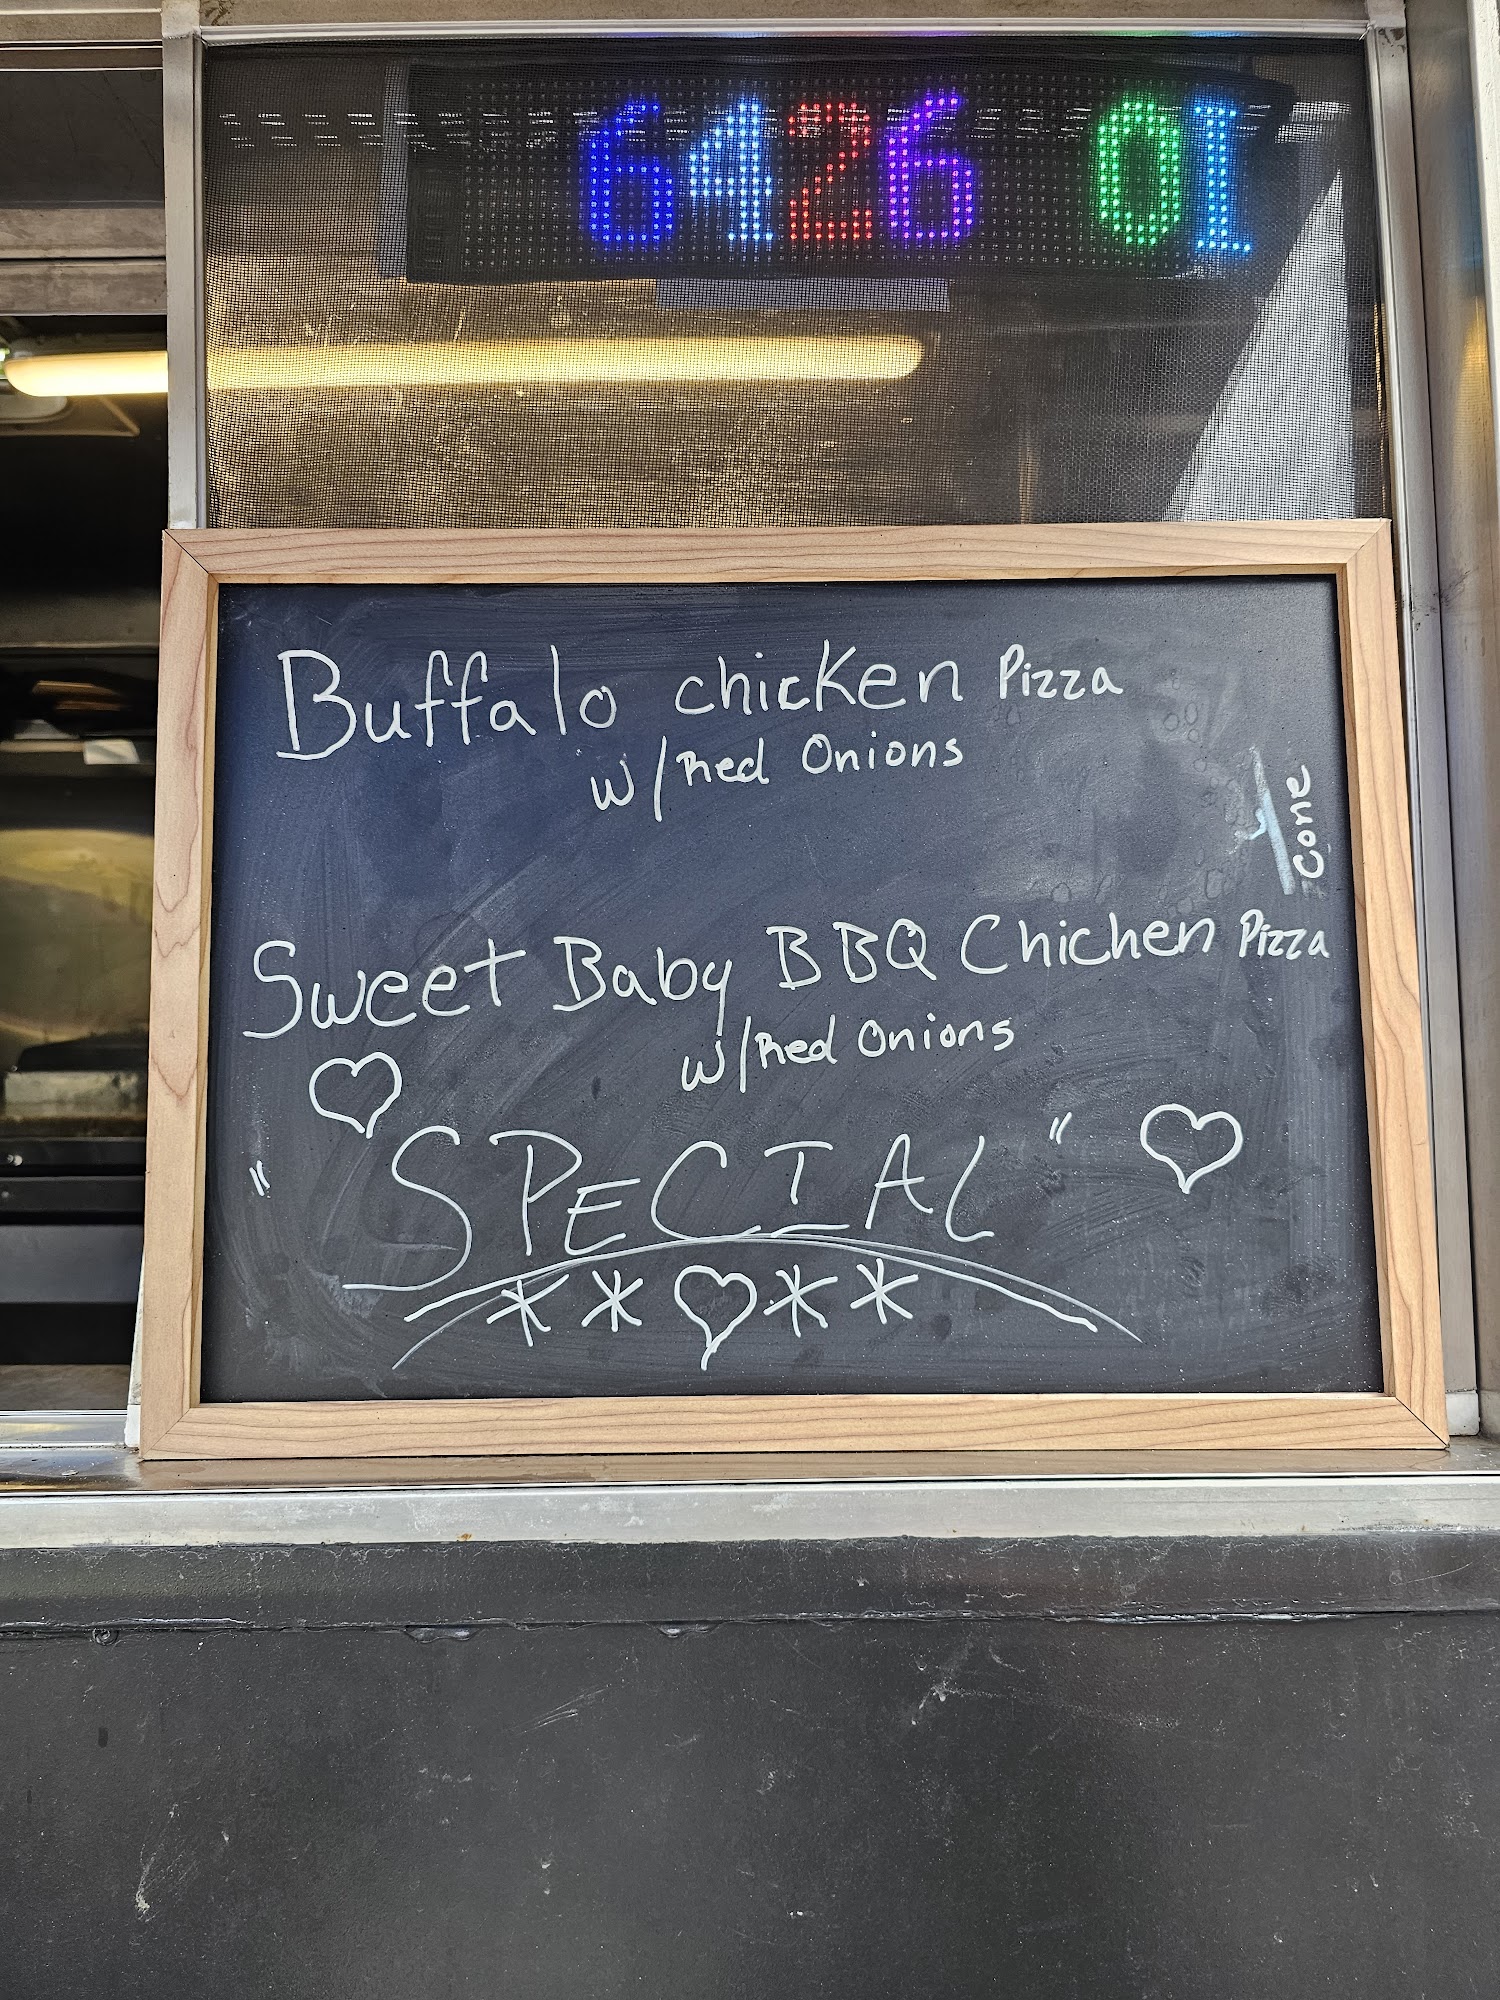 6426 01
Buffalo chicken Pizza
w/Red Onions
Cone
Sweet Baby BBQ Chichen Pizza
w/Red Onions
"SPECIAL"